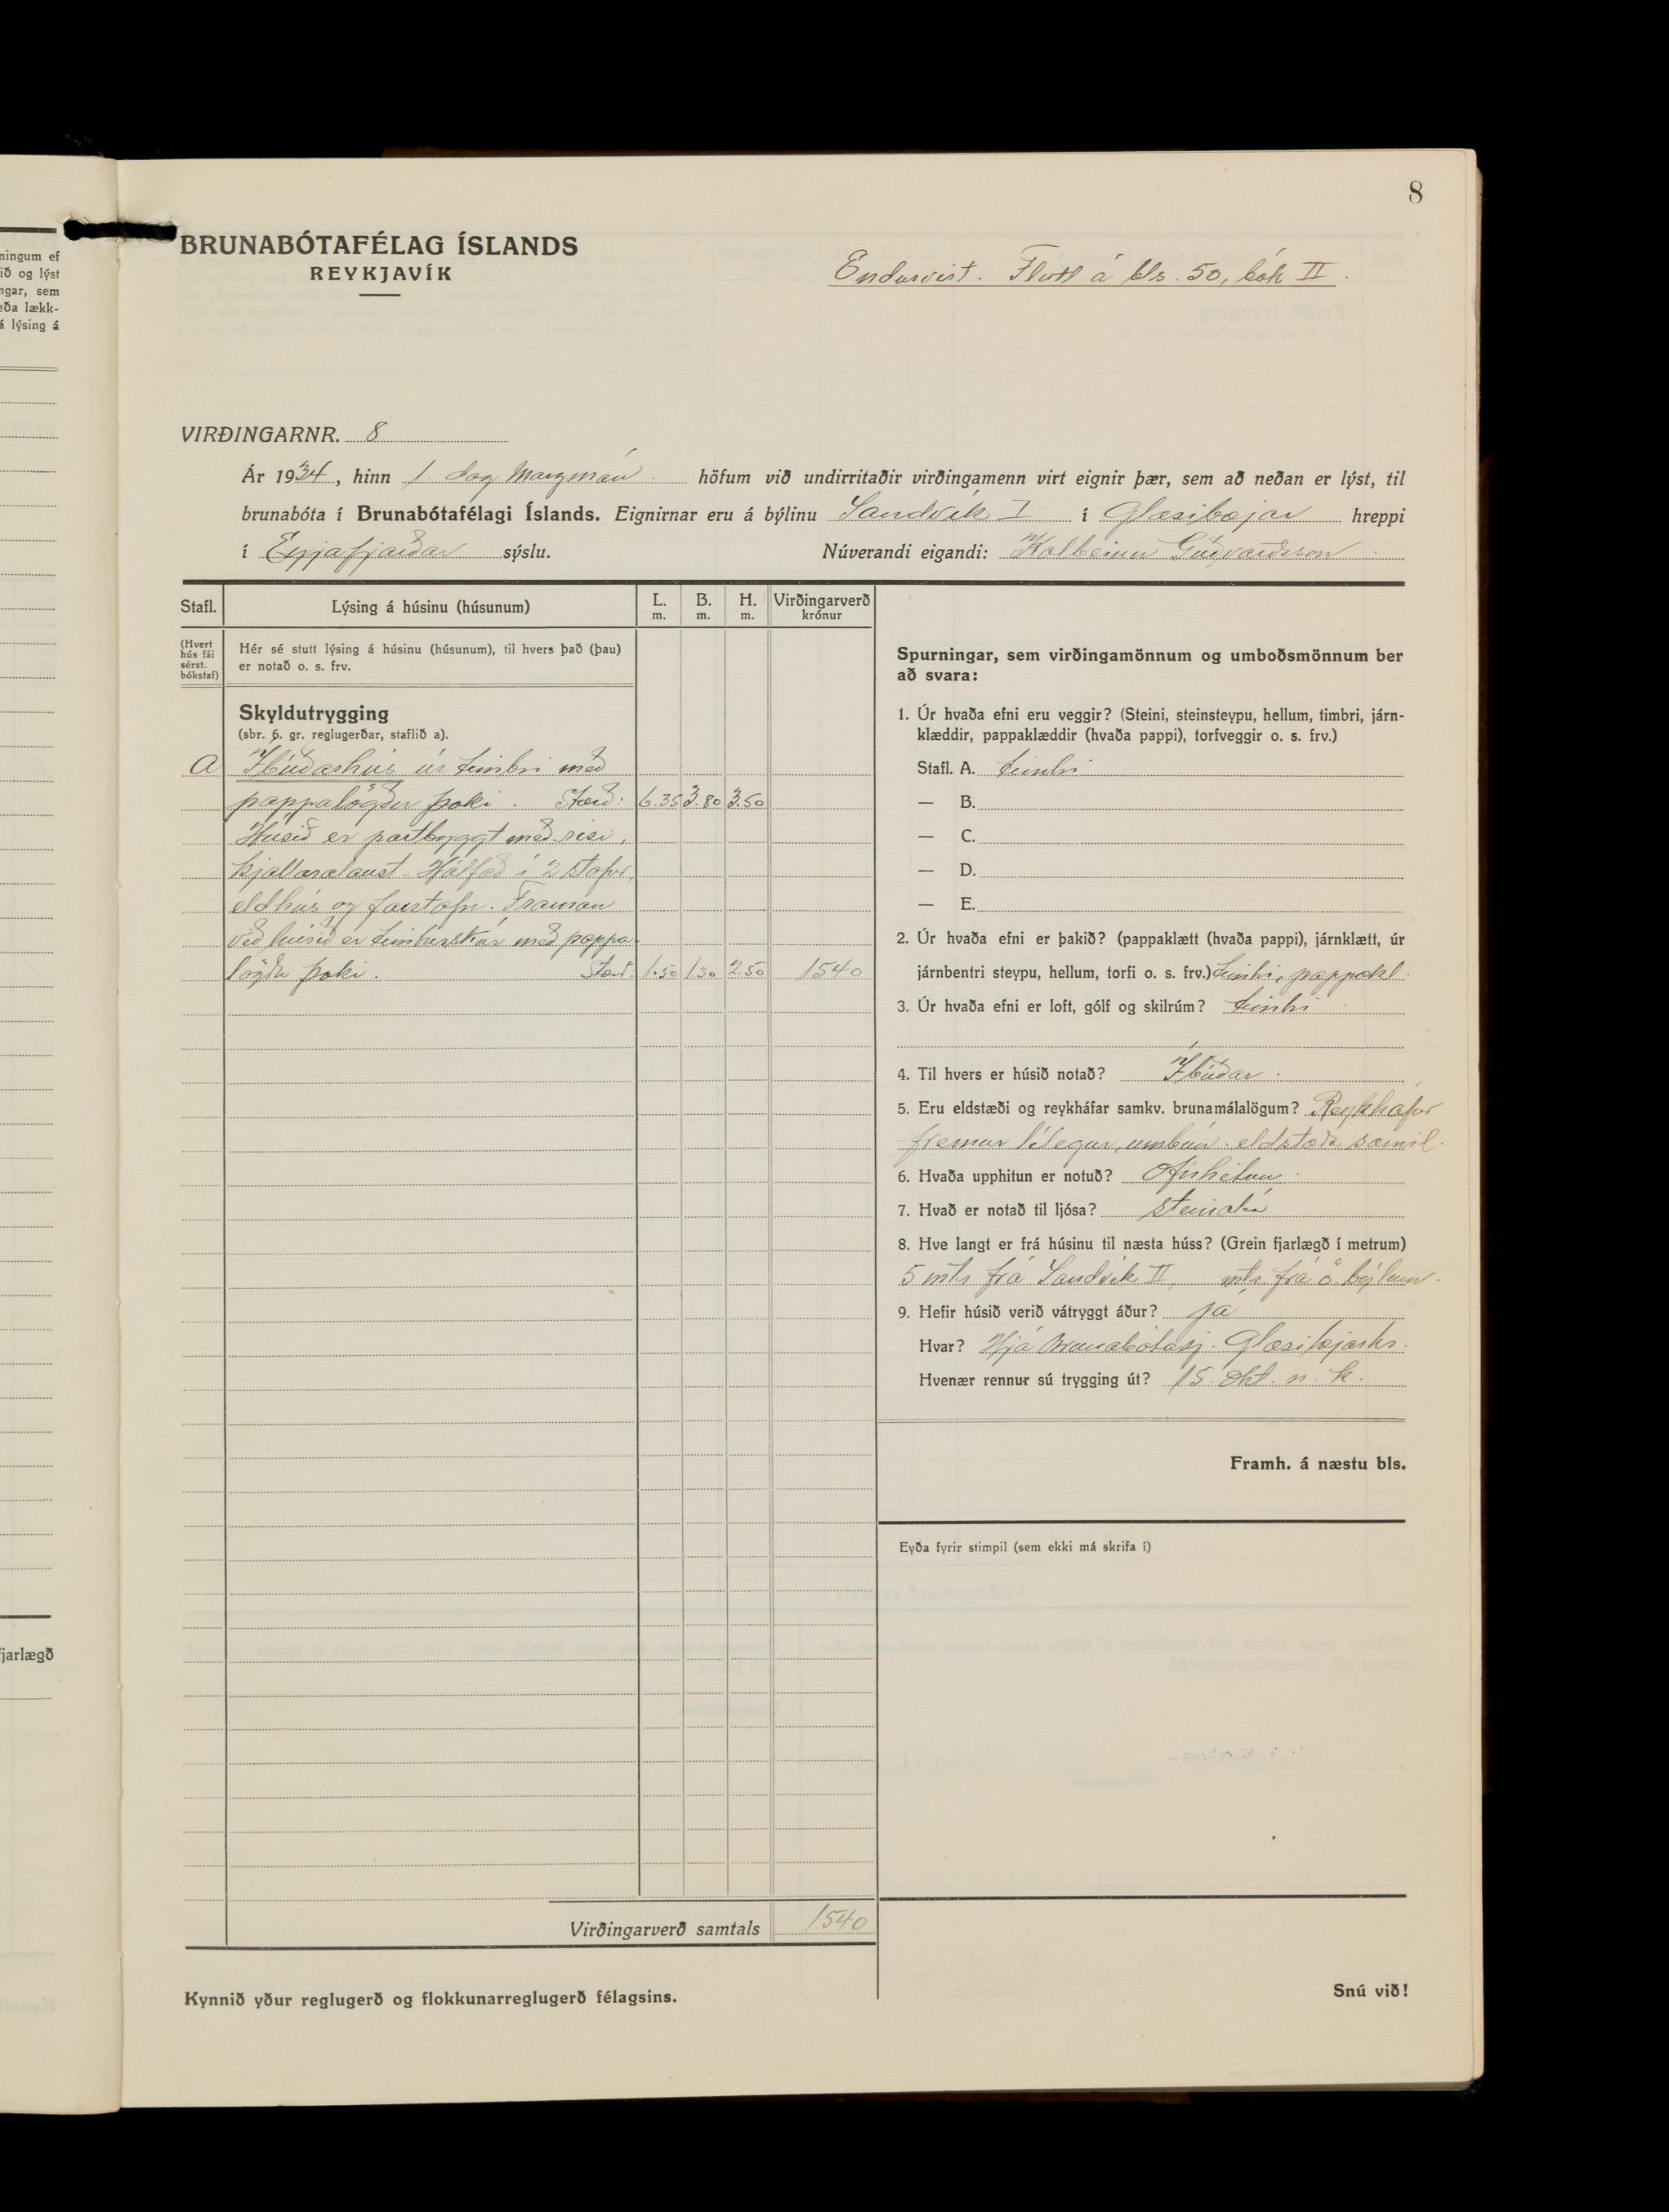 8
ningum ef
ið og lýst
ngar, sem
eða lækk-
á lýsing á
fjarlægð
BRUNABÓTAFÉLAG ÍSLANDS
REYKJAVÍK
Endurvirt. Flutt á bls. 50, bók II.
VIRÐINGARNR. 8
Ár 1934, hinn 1. dag Marzmán. höfum við undirritaðir virðingamenn virt eignir þær, sem að neðan er lýst, til
brunabóta í Brunabótafélagi Íslands. Eignirnar eru á býlinu Sandvík I í Glæsibæjar hreppi
í Eyjafjarðar sýslu. Núverandi eigandi: Kolbeinn
Stafl. Lýsing á húsinu (húsunum) L. m. B. m. H. m. Virðingarverð krónur
(Hvert hús fái sérst. bókstaf) Hér sé stutt lýsing á húsinu (húsunum), til hvers það (þau)
er notað o. s. frv.
Skyldutrygging
(sbr. 6. gr. reglugerðar, staflið a).
A Íbúðarhús úr timbri með
pappalögðu þaki. Stærð: 6.35 3.80 3.50
Húsið er portbyggt með risi,
kjallaralaust. Hólfað í 2 stofur,
eldhús og forstofu. Framan
við húsið er timburskúr með pappa-
lögðu þaki. Stærð: 1.50 1.30 2.50 1540
Virðingarverð samtals 1540
Kynnið yður reglugerð og flokkunarreglugerð félagsins.
Spurningar, sem virðingamönnum og umboðsmönnum ber
að svara:
1. Úr hvaða efni eru veggir? (Steini, steinsteypu, hellum, timbri, járn-
klæddir, pappaklæddir (hvaða pappi), torfveggir o. s. frv.)
Stafl. A. timbri
— B.
— C.
— D.
— E.
2. Úr hvaða efni er þakið? (pappaklætt (hvaða pappi), járnklætt, úr
járnbentri steypu, hellum, torfi o. s. frv.) timbri, pappakl.
3. Úr hvaða efni er loft, gólf og skilrúm? timbri
4. Til hvers er húsið notað? Íbúðar.
5. Eru eldstæði og reykháfar samkv. brunamálalögum? Reykháfur
fremur lélegur, umbún. eldstæða sæmil.
6. Hvaða upphitun er notuð? Ofnhitun.
7. Hvað er notað til ljósa? steinolía
8. Hve langt er frá húsinu til næsta húss? (Grein fjarlægð í metrum)
5 mtr frá Sandvík II, mtr. frá ö. býlum.
9. Hefir húsið verið vátryggt áður? já
Hvar? Hjá Brunabótasj. Glæsibæjarhr.
Hvenær rennur sú trygging út? 15. okt. n. k.
Framh. á næstu bls.
Eyða fyrir stimpil (sem ekki má skrifa í)
Snú við!